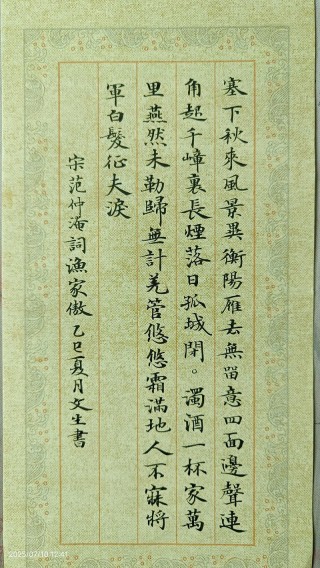 塞下秋來風景異衡陽雁去無留意四面邊聲連
角起千嶂裏長煙落日孤城閉。濁酒一杯家萬
里燕然未勒歸無計羌管悠悠霜滿地人不寐將
軍白髮征夫淚
宋范仲淹詞漁家傲乙巳夏月文生書
2025/07/10 12:41